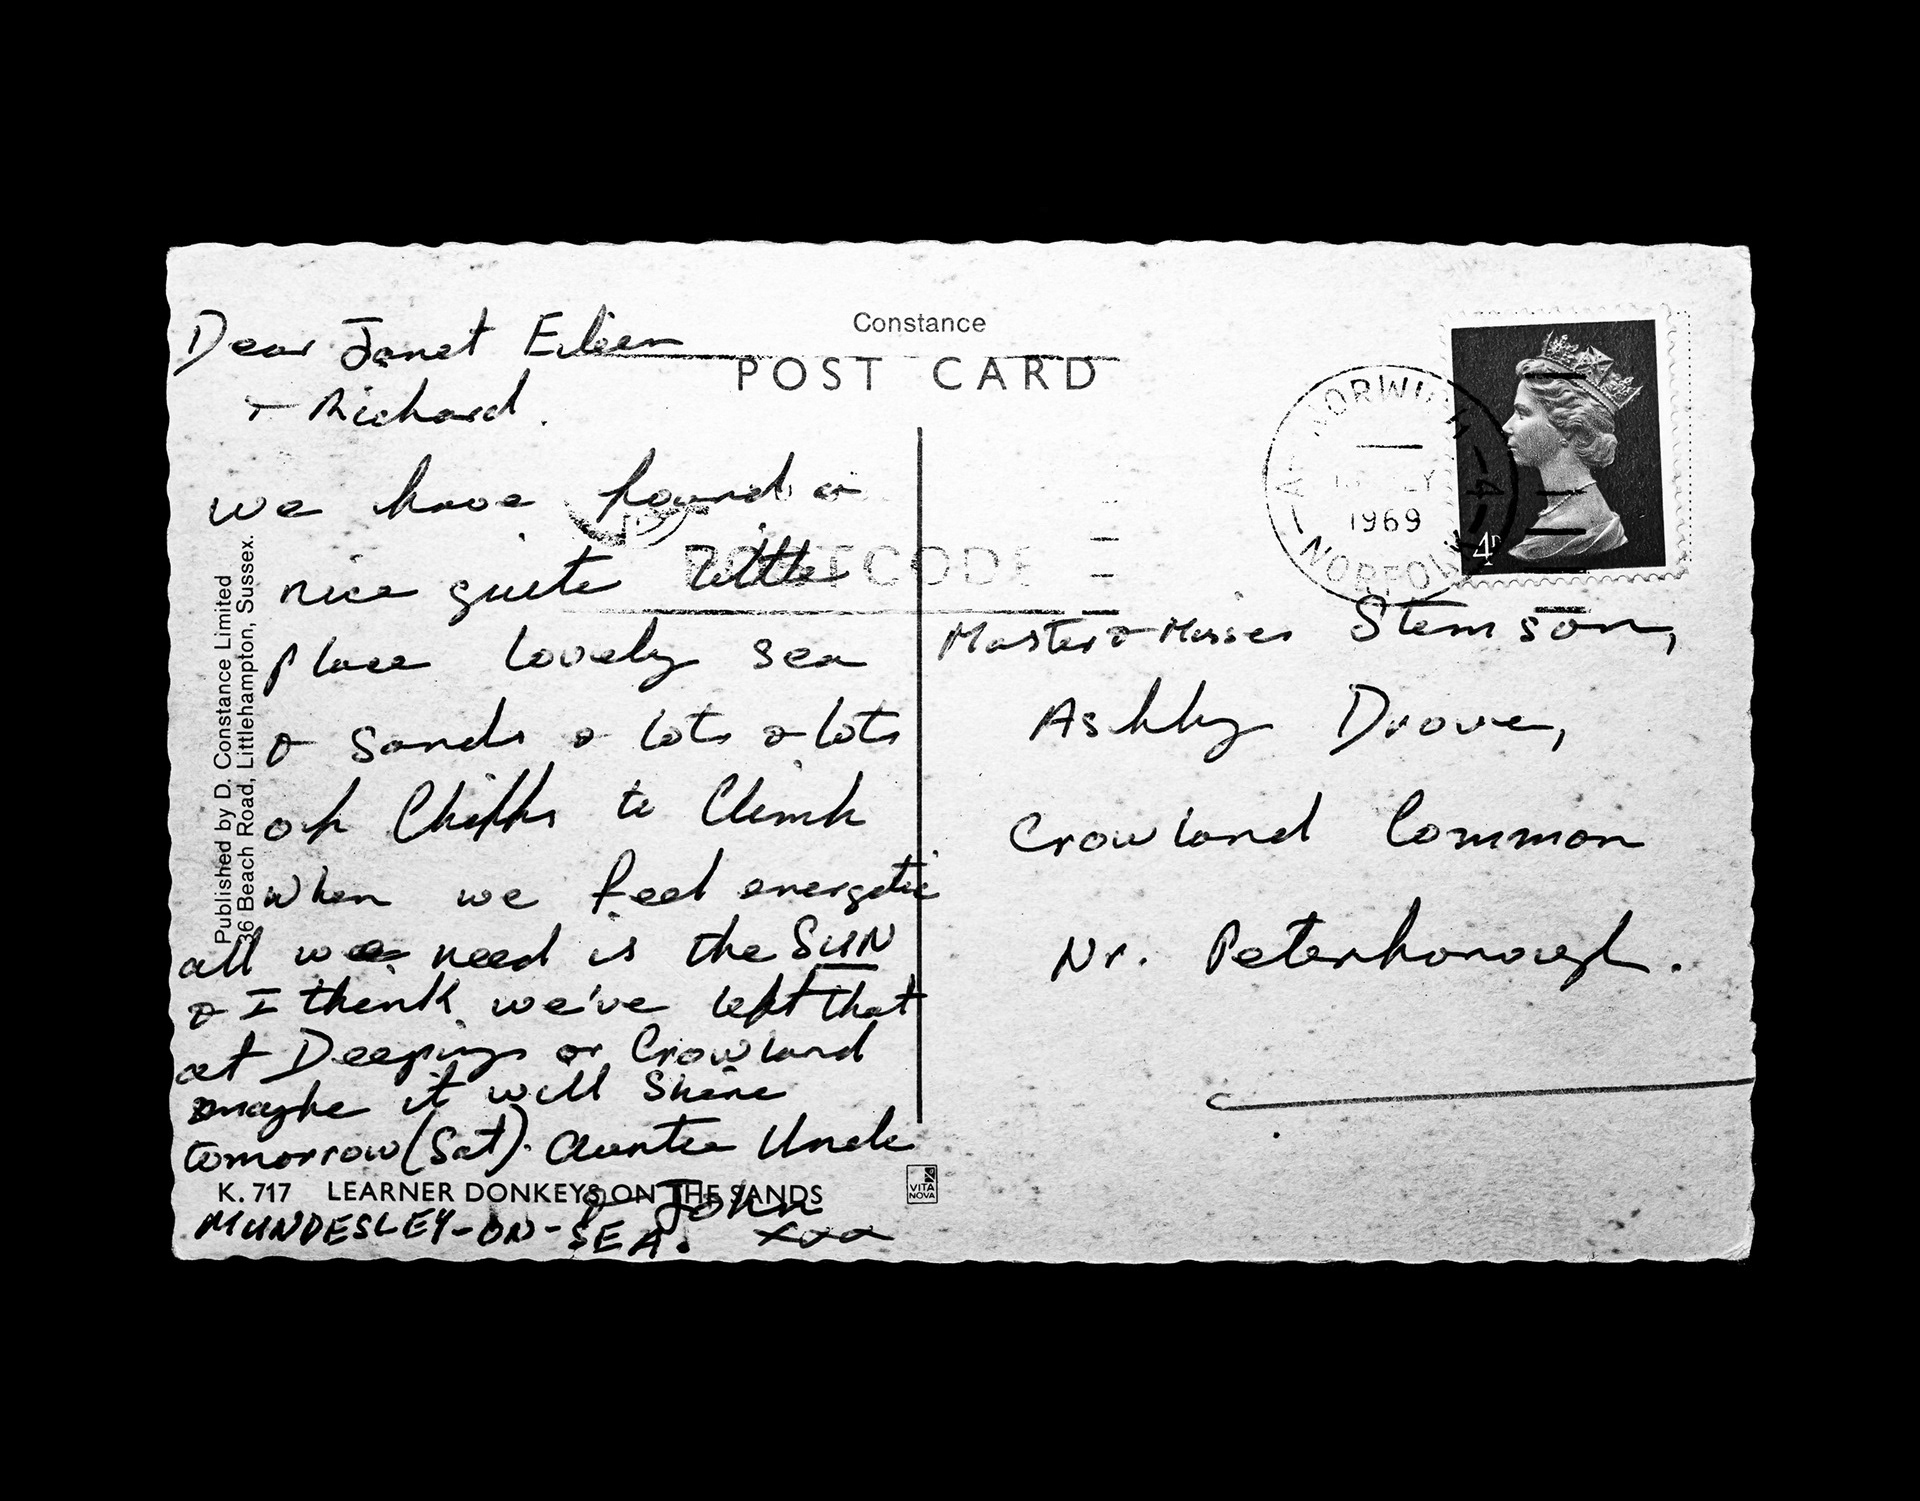 Constance
POST CARD
Dear Janet Eileen
+ Richard.
we have found a
nice quite little
place lovely sea
& sands & lots & lots
of Cliffs to Climb
when we feel energetic
all we need is the SUN
& I think we've left that
at Deepings or Crowland
maybe it will shine
tomorrow (Sat). Auntie Uncle
& John
xxx
K. 717 LEARNER DONKEYS ON THE SANDS
MUNDESLEY-ON-SEA.
Published by D. Constance Limited
36 Beach Road, Littlehampton, Sussex.
VITA
NOVA
POSTCODE
NORWICH
LY
1969
NORFOLK
-A-
4D
Master & Misses Stemson,
Ashby Drove,
Crowland Common
Nr. Peterborough.